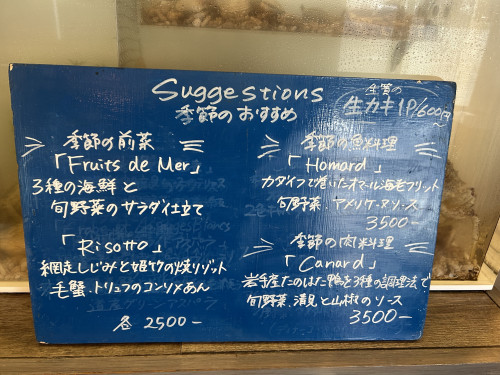 Suggestions
季節のおすすめ
生カキ1P/600円〜
季節の前菜
「Fruits de Mer」
3種の海鮮と
旬野菜のサラダ仕立て
「Risotto」
網走しじみと姫竹の焼リゾット
毛蟹、トリュフのコンソメあん
各 2500-
季節の魚料理
「Homard」
カダイフで巻いたオマール海老フリット
旬野菜 アメリケーヌソース
3500-
季節の肉料理
「Canard」
岩手産たのはた鴨を3種の調理法で
旬野菜、湯見と山椒のソース
3500-